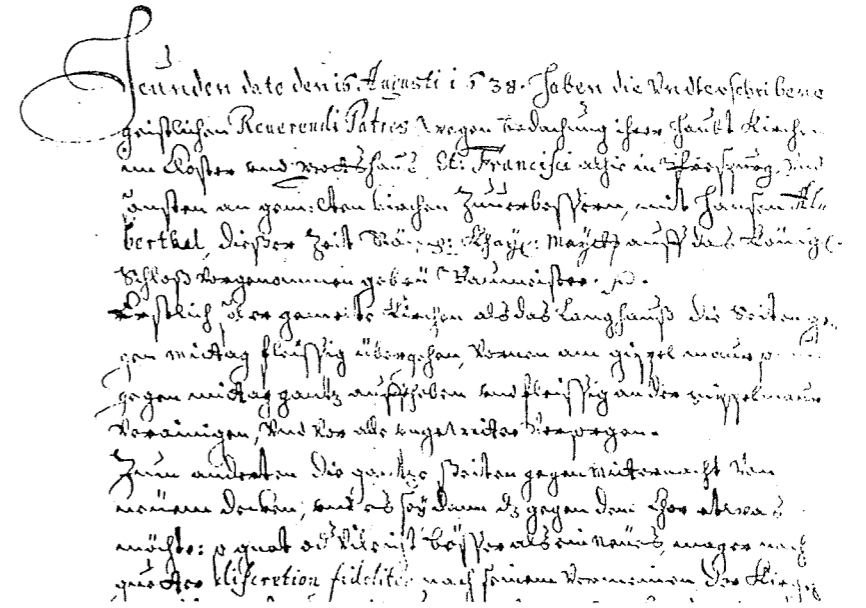 dato den 16 Augusti 1638. haben die Undterschribene
geistlichen Reverendi Patres wegen bedachung ihrer haubt Kirchen
im Closter und St: Francisci alhie in Prespurg, und
ansten an gemelten kirchen zuuerbessern, mit Hansen Al„
berthal, dießer Zeit Röm: Khay: May: auff das König:
Schloß vorgenommenen gebeü Baumeister.
Erstlich gemelte Kirchen als das Langhauß die Seiten ge„
gen mittag fleissig übergehen, Vornen am gippel maur
gegen mittag gantz auffheben und fleissig an der gippelmaur
Verainigen, Und vor alle ungewitter Versorgen.
Zum anderten die gantze Seiten gegen Mitternacht Von
neüem decken, und es sey dann dz gegen dem Chor etwas
möchte: guet besser als ein Neües, mag er nach
gueter discretion fideliter nach seinem Vermeinen der Kirchen